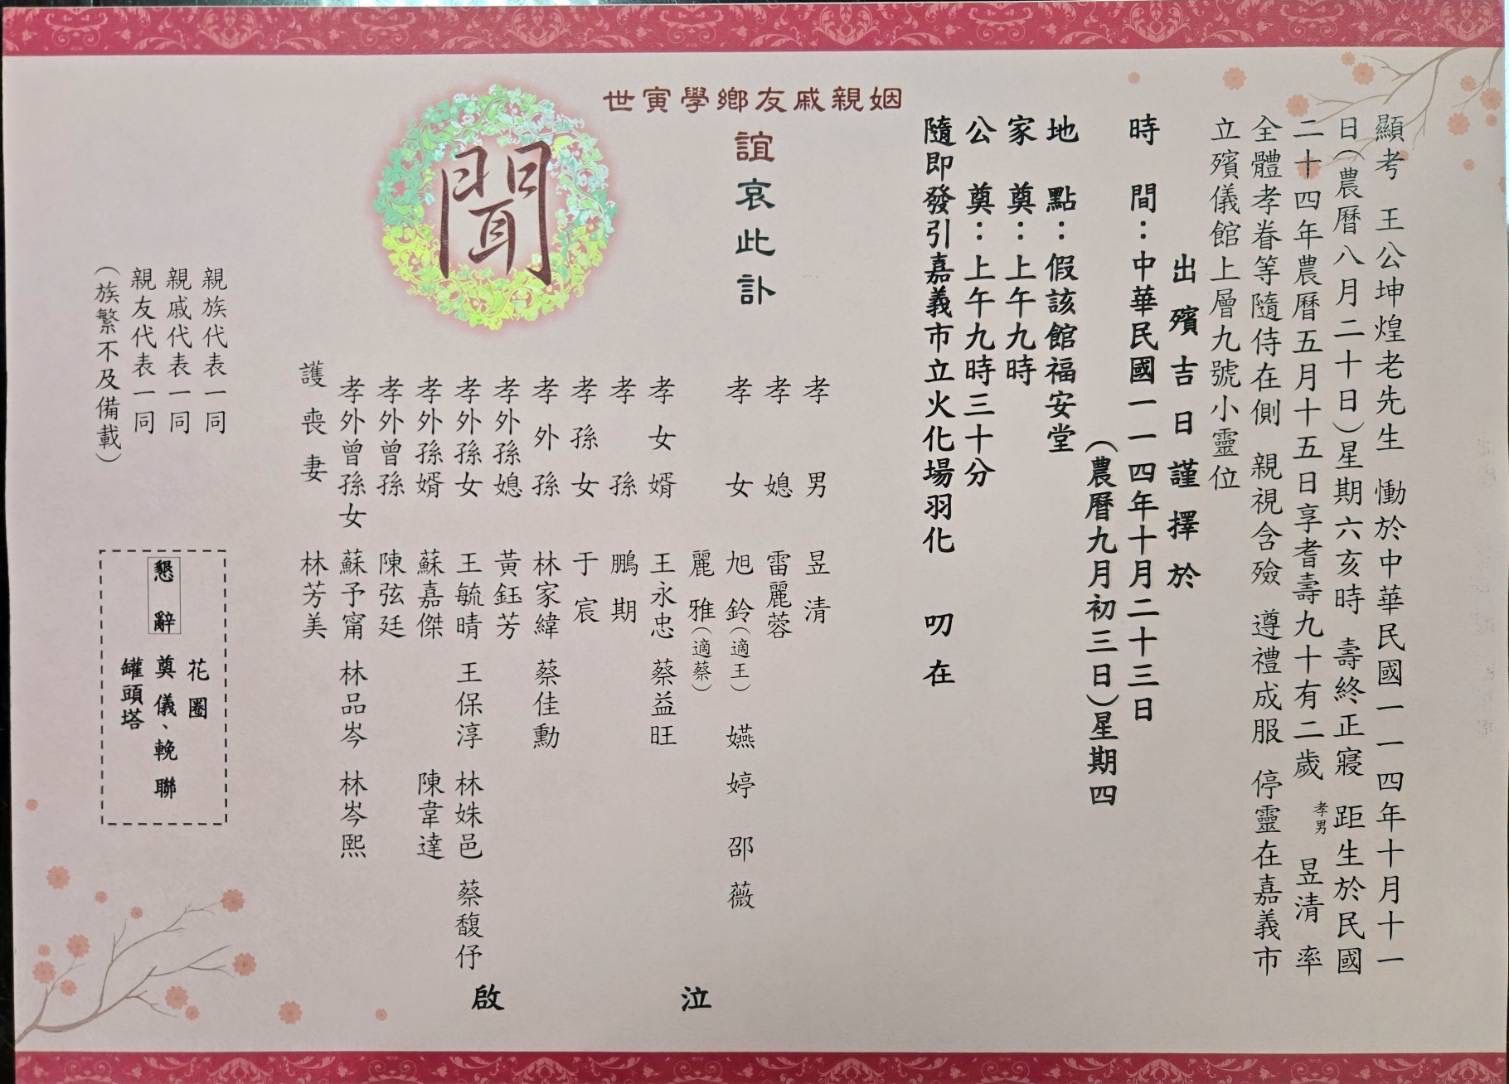 顯考　王公坤煌老先生　慟於中華民國一一四年十月十一
日(農曆八月二十日)星期六亥時　壽終正寢　距生於民國
二十四年農曆五月十五日享耆壽九十有二歲　孝男　昱清　率
全體孝眷等隨侍在側　親視含殮　遵禮成服　停靈在嘉義市
立殯儀館上層九號小靈位
出殯吉日謹擇於
時　間：中華民國一一四年十月二十三日
(農曆九月初三日)星期四
地　點：假該館福安堂
家　奠：上午九時
公　奠：上午九時三十分
隨即發引嘉義市立火化場羽化　叨在
姻親戚友鄉學寅世
誼哀此訃
聞
孝男　昱清
孝媳　雷麗蓉
孝女　旭鈴(適王)　嬿婷　邵薇
麗雅(適蔡)
孝女婿　王永忠　蔡益旺
孝孫　鵬期
孝孫女　于宸
孝外孫　林家緯　蔡佳勳
孝外孫媳　黃鈺芳
孝外孫女　王毓晴　王保淳　林姝邑　蔡馥伃
孝外孫婿　蘇嘉傑　陳韋達
孝外曾孫　陳弦廷
孝外曾孫女　蘇予甯　林品岑　林岑熙
護喪妻　林芳美
泣
啟
親族代表一同
親戚代表一同
親友代表一同
(族繁不及備載)
懇辭
花圈
奠儀、輓聯
罐頭塔